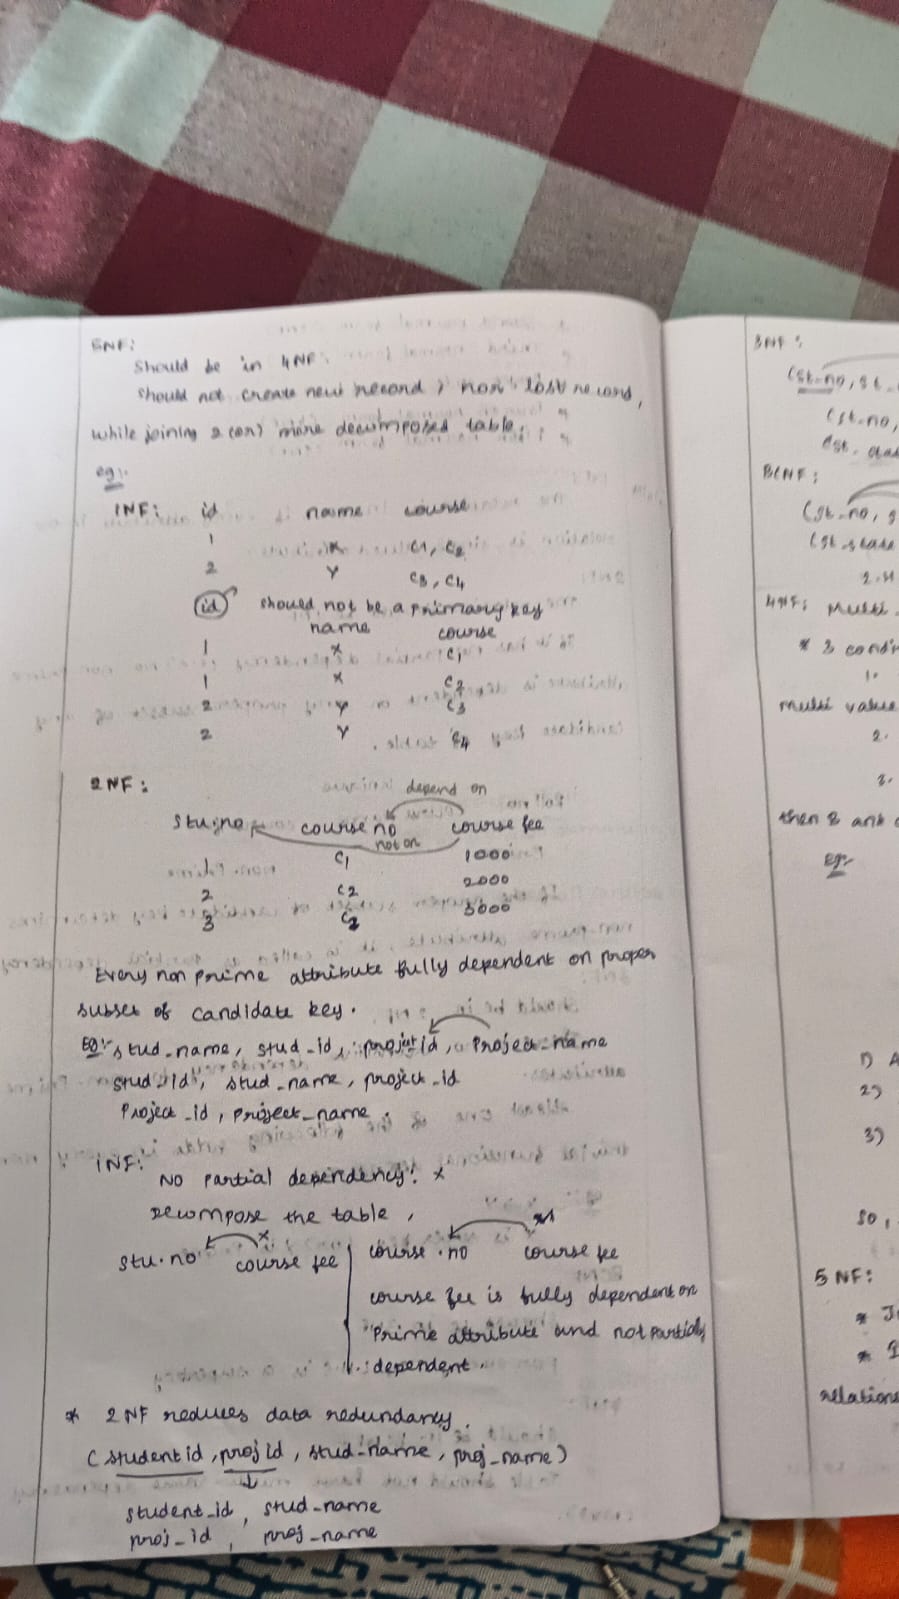 5NF:
Should be in 4NF.
Should not create new record, nor lost record,
while joining 2 (or) more decomposed table.
eg:-
1NF: id name course
1 X C1, C2
2 Y C3, C4
id should not be a primary key
name course
1 X C1
1 X C2
2 Y C3
2 Y C4
2NF:
depend on
stu.no course no course fee
not on
C1 1000
2 C2 2000
3 C3 3000
Every non prime attribute fully dependent on proper
subset of candidate key.
EG:- stud_name, stud_id, project id, Project_name
stud_id, stud_name, project_id
Project_id, project_name.
1NF:
NO partial dependency! x
decompose the table,
x
stu.no course fee
course.no course fee
course fee is fully dependent on
"Prime attribute" and not partially
dependent.
* 2NF reduces data redundancy.
(student id, proj id, stud_name, proj_name)
student_id, stud_name
proj_id, proj_name
3NF:
(st_no, st_
(st_no,
BCNF:
(st_no, s
(st_state
4NF: Multi
* 3 cond
1.
multi value
2.
3.
then B and
Eg:-
1) A
2)
3)
so,
5NF:
* J
*
relations